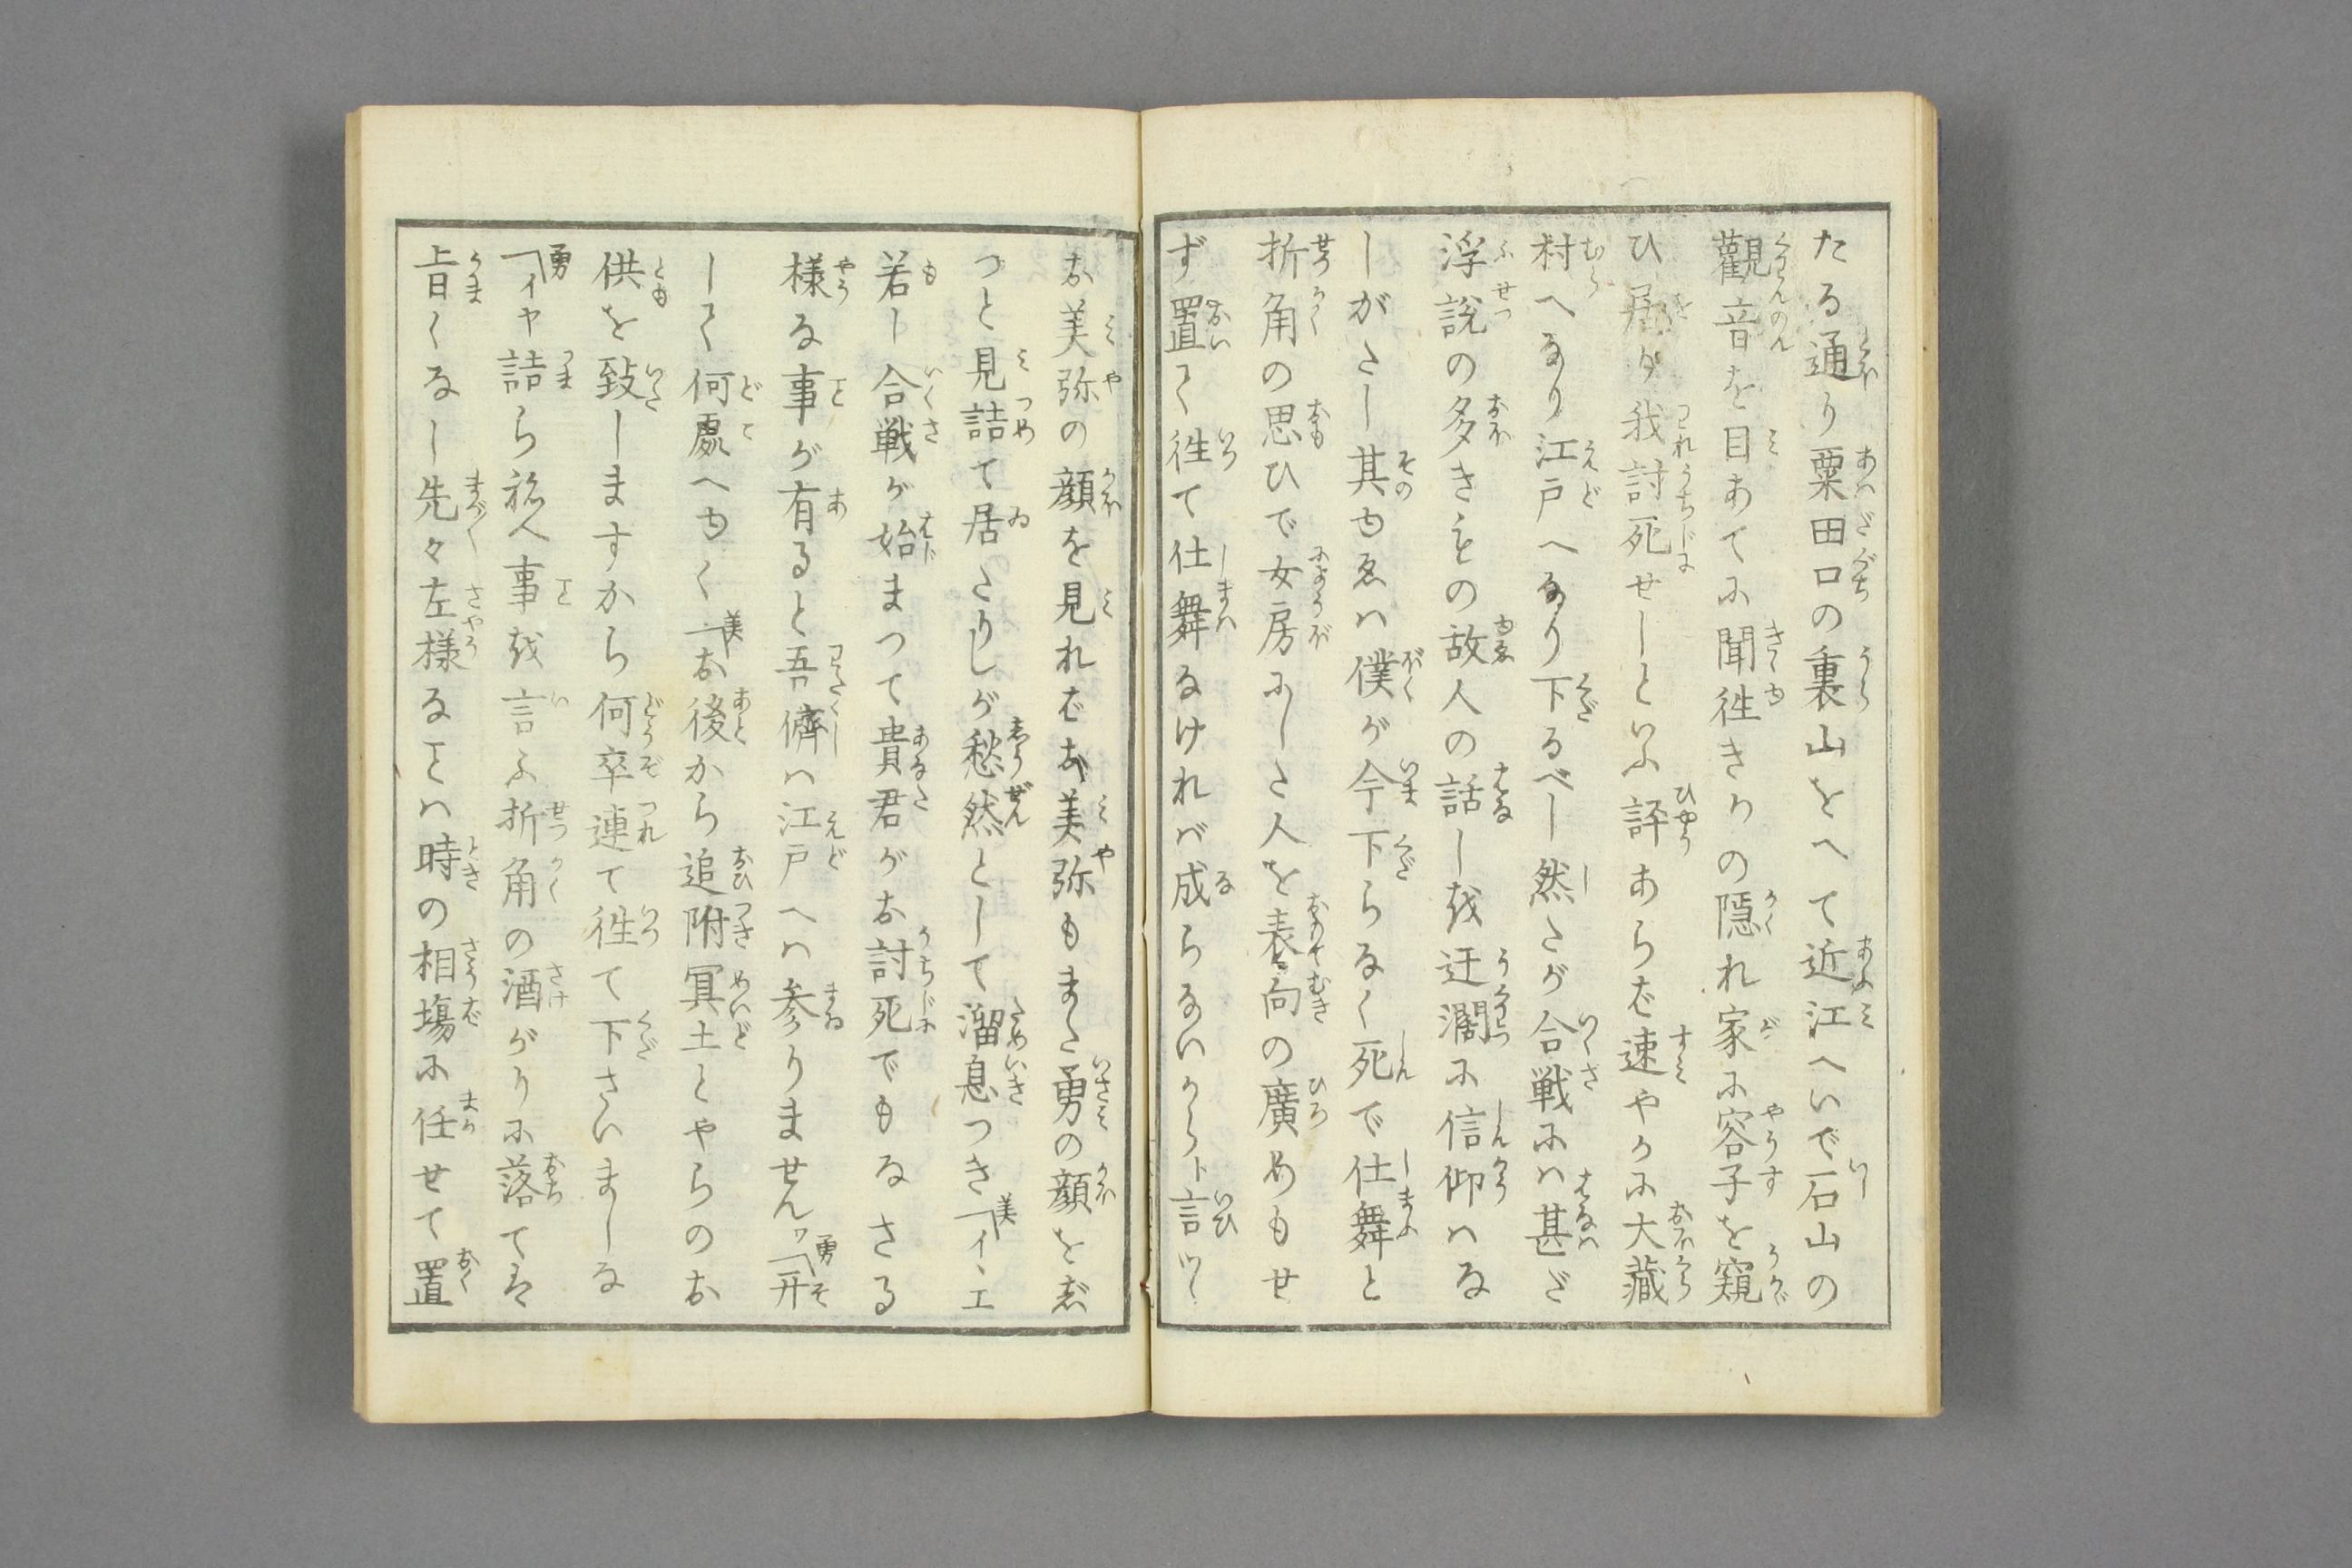 たる通り粟田口の裏山をへて近江へいで石山の
觀音を目あてに聞徃きかの隠れ家に容子を窺
ひ居タ我討死せしといふ評あらば速やかに大藏
村へなり江戸へなり下るべし然たが合戦にハ甚ざ
浮説の多きもの故人の話しを迂濶に信仰ハな
しがたし其ゆゑハ僕が今下らなく死で仕舞と
折角の思ひで女房にした人を表向の廣めもせ
ず置て徃て仕舞なければ成らないからト言ツヽ
お美弥の顔を見ればお美弥もまた勇の顔をぢ
つと見詰て居たりしが愁然として溜息つき美「イヽエ
若し合戦が始まつて貴君がお討死でもなさる
様な事が有ると吾儕ハ江戸へハ参りませんヮ勇「开
して何處へゆく美「お後から追附冥土とやらのお
供を致しますから何卒連て徃て下さいましな
勇「イヤ詰らねへ事を言ふ折角の酒がりに落ては
旨くなし先々左様なヿハ時の相塲に任せて置